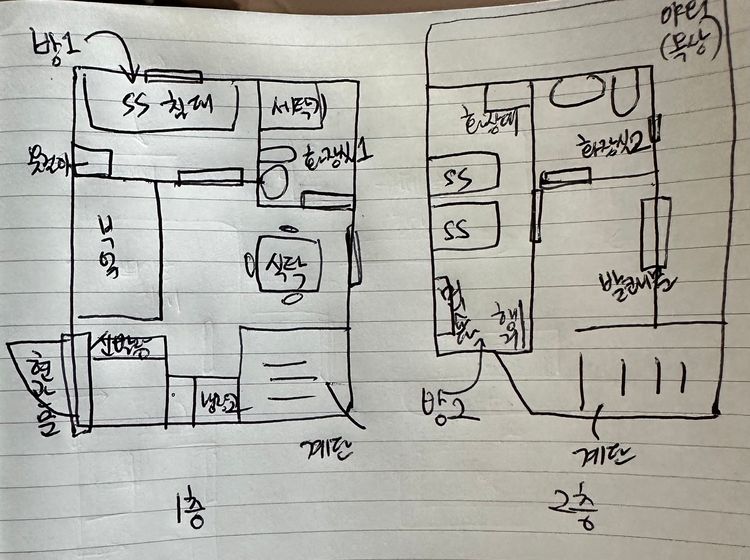 방1
SS 침대
세탁기
화장실1
옷걸이
부엌
식탁
신발장
현관문
냉장고
계단
1층
야외
(옥상)
화장대
화장실2
SS
SS
발코니문
행거
방2
계단
2층